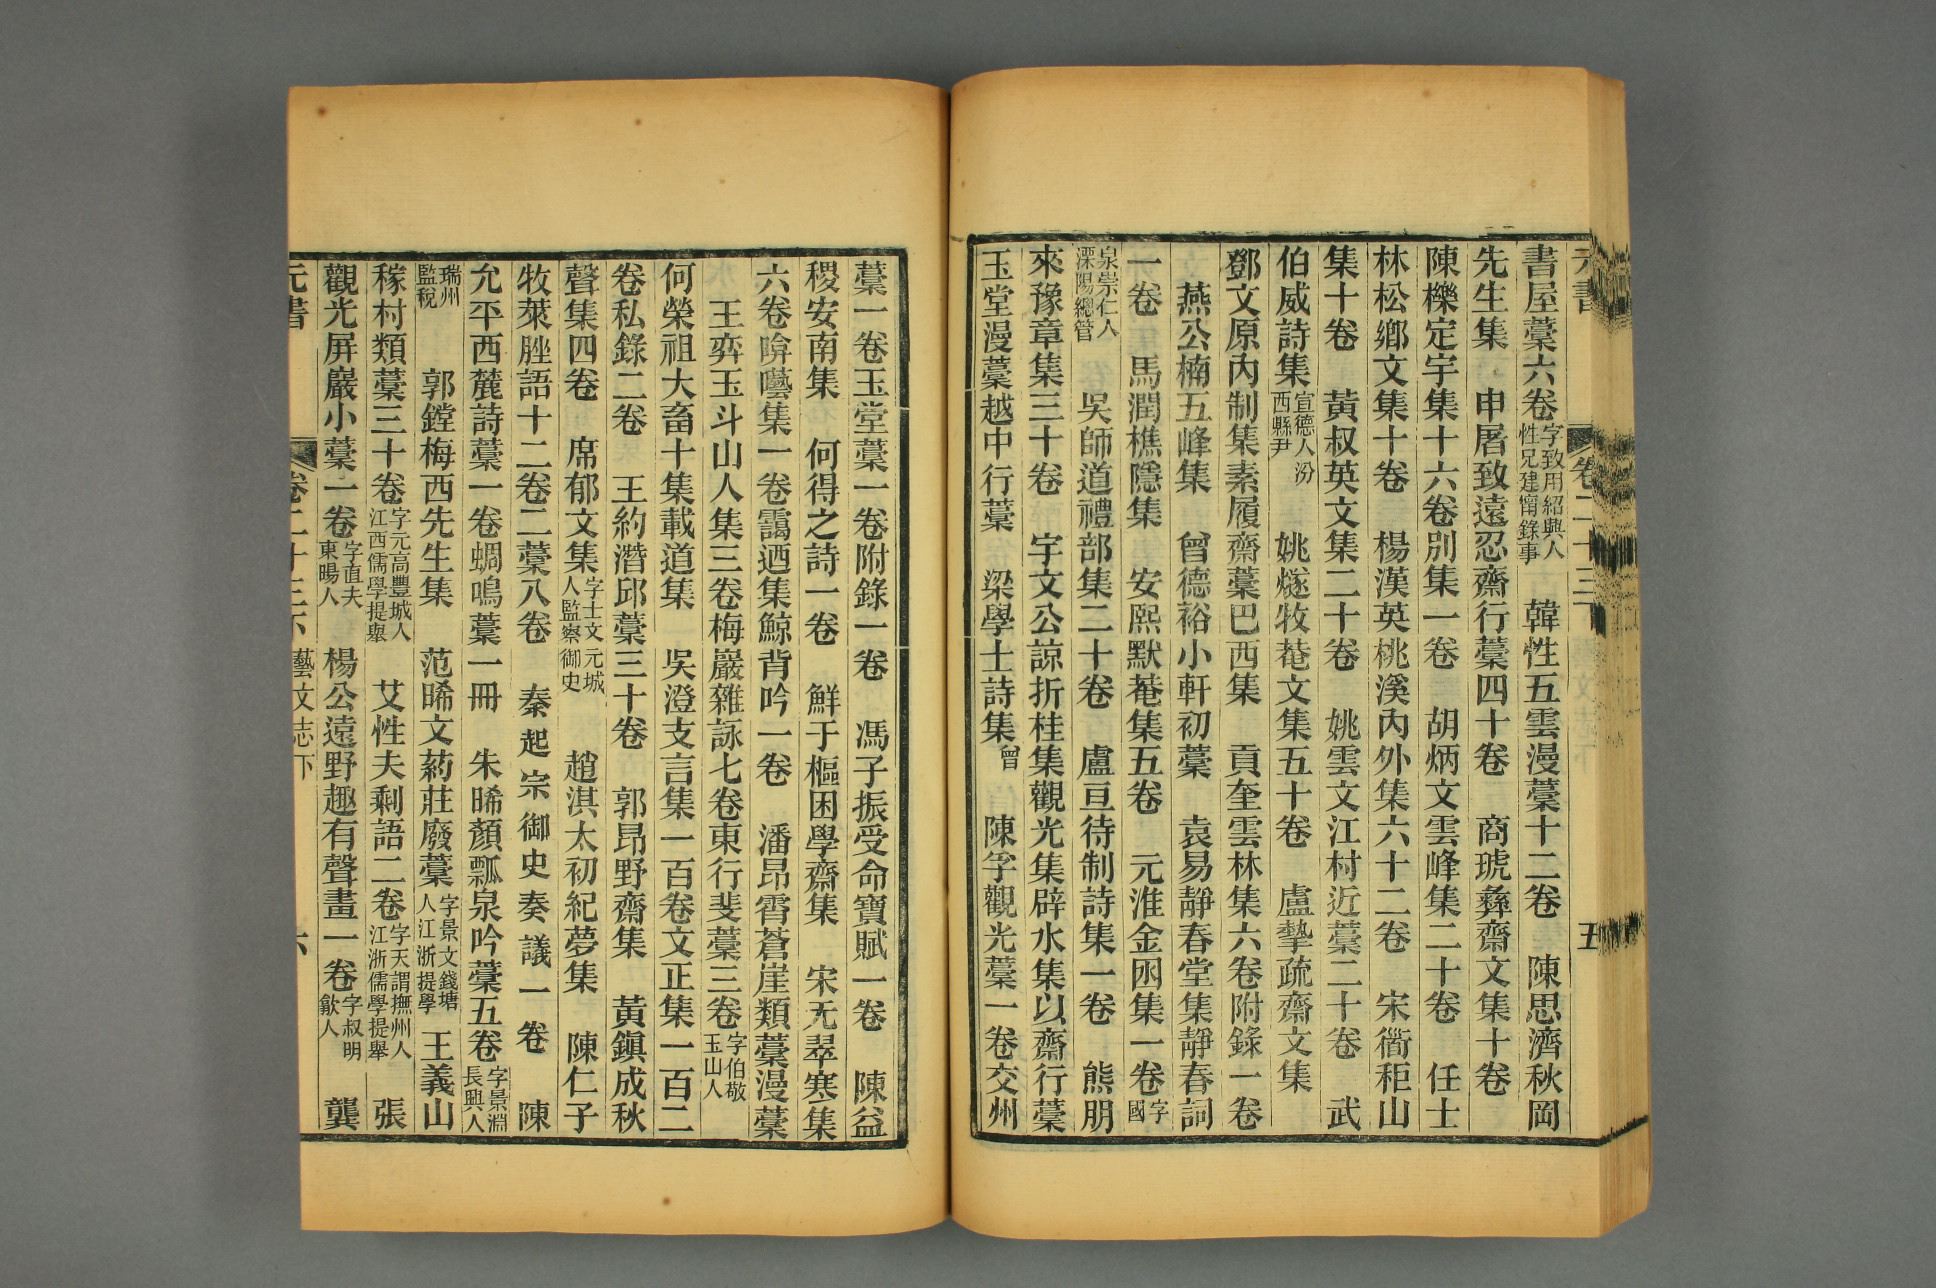 元書 卷二十三下 五
書屋藁六卷字致用紹興人性兄建甯錄事 韓性五雲漫藁十二卷 陳思濟秋岡
先生集 申屠致遠忍齋行藁四十卷 商琥彝齋文集十卷
陳櫟定宇集十六卷別集一卷 胡炳文雲峰集二十卷 任士
林松鄉文集十卷 楊漢英桃溪內外集六十二卷 宋衜秬山
集十卷 黃叔英文集二十卷 姚雲文江村近藁二十卷 武
伯威詩集宣德人汾西縣尹 姚燧牧菴文集五十卷 盧摯疏齋文集
鄧文原內制集素履齋藁巴西集 貢奎雲林集六卷附錄一卷
燕公楠五峰集 曾德裕小軒初藁 袁易靜春堂集靜春詞
一卷 馬潤樵隱集 安熙默菴集五卷 元淮金囦集一卷字國
泉崇仁人溧陽總管 吳師道禮部集二十卷 盧亘待制詩集一卷 熊朋
來豫章集三十卷 宇文公諒折桂集觀光集辟水集以齋行藁
玉堂漫藁越中行藁 梁學士詩集曾 陳孚觀光藁一卷交州
藁一卷玉堂藁一卷附錄一卷 馮子振受命寶賦一卷 陳益
稷安南集 何得之詩一卷 鮮于樞困學齋集 宋无翠寒集
六卷啽囈集一卷靄迺集鯨背吟一卷 潘昂霄蒼崖類藁漫藁
王弈玉斗山人集三卷梅巖雜詠七卷東行斐藁三卷字伯敬玉山人
何榮祖大畜十集載道集 吳澄支言集一百卷文正集一百二
卷私錄二卷 王約潛邱藁三十卷 郭昂野齋集 黃鎭成秋
聲集四卷 席郁文集字士文元城人監察御史 趙淇太初紀夢集 陳仁子
牧萊脞語十二卷二藁八卷 秦起宗御史奏議一卷 陳
允平西麓詩藁一卷蜩鳴藁一冊 朱晞顏瓢泉吟藁五卷字景淵長興人
瑞州監稅 郭鏜梅西先生集 范晞文葯莊廢藁字景文錢塘人江浙提學 王義山
稼村類藁三十卷字元高豐城人江西儒學提舉 艾性夫剩語二卷字天謂撫州人江浙儒學提舉 張
觀光屏巖小藁一卷字直夫東暘人 楊公遠野趣有聲畫一卷字叔明歙人 龔
元書 卷二十三下 藝文志下 六